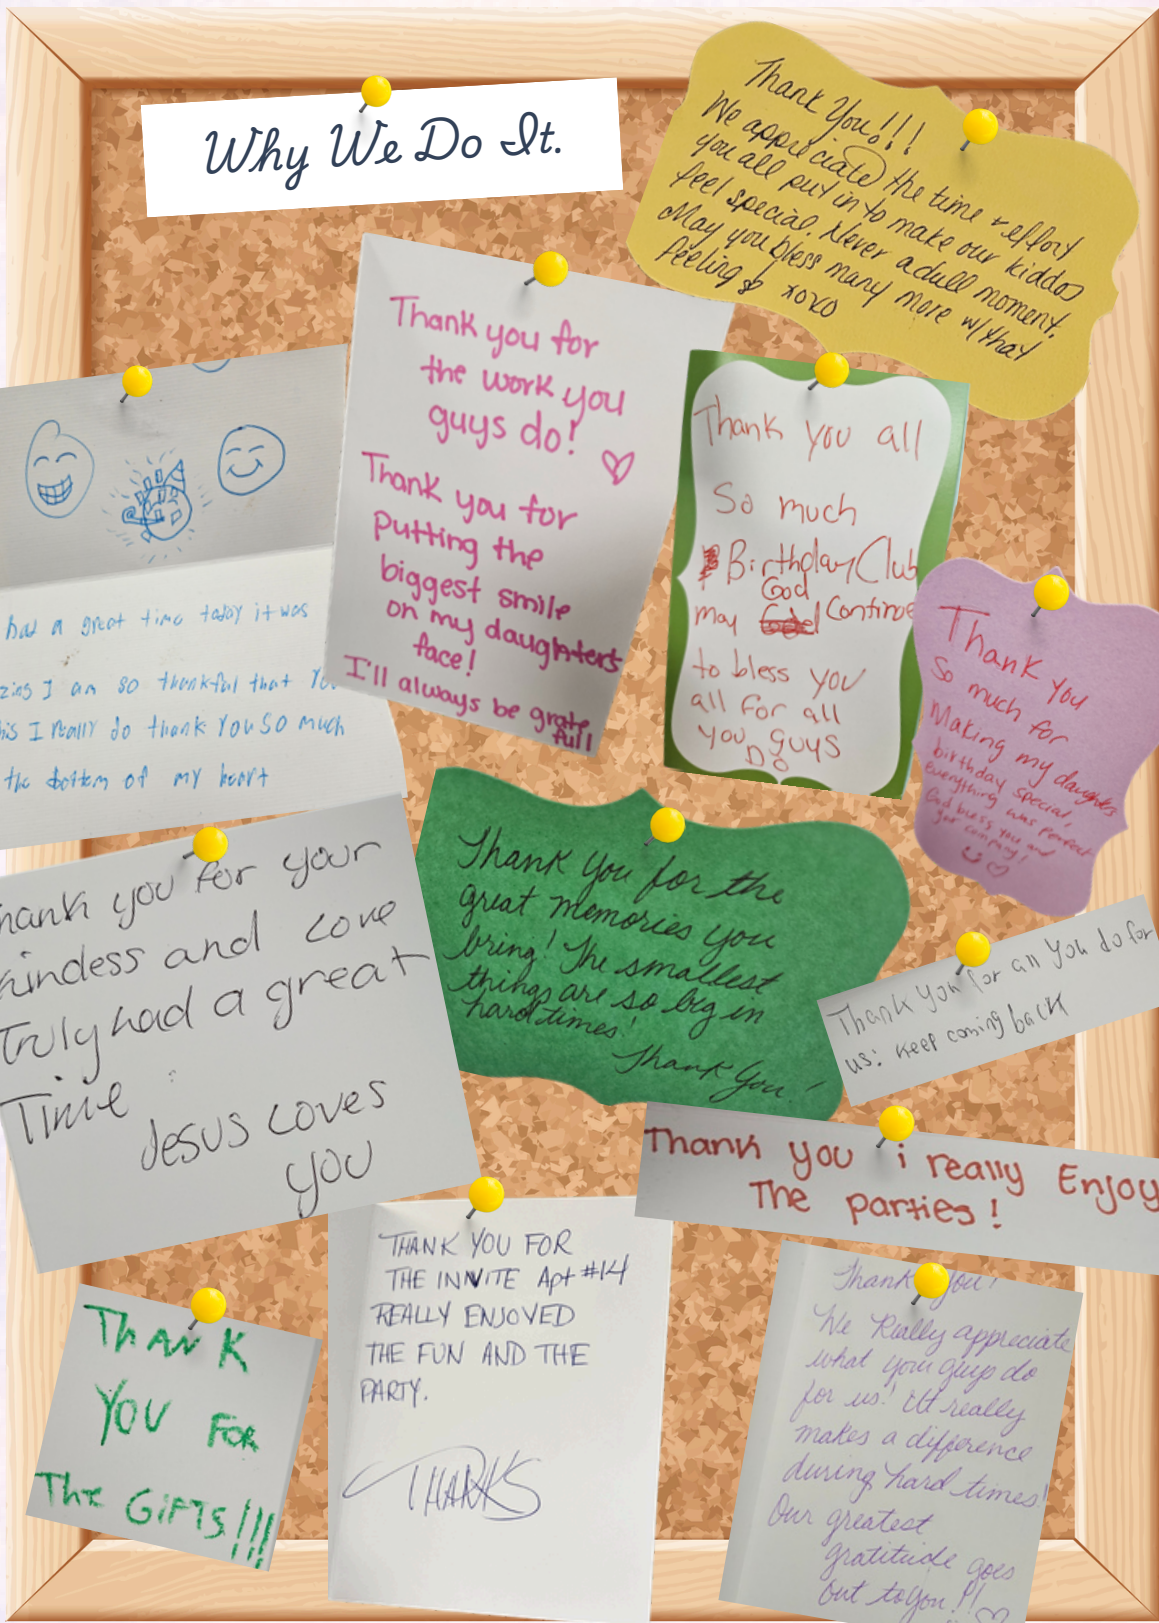 Why We Do It.
Thank You!!!
We appreciate the time & effort
you all put in to make our kiddos
feel special. Never a dull moment.
May you bless many more w/ that
feeling! xoxo
Thank you for
the work you
guys do!
Thank you for
Putting the
biggest smile
on my daughters
face!
I'll always be grate
full
Thank you all
So much
Birthday Club
God
may Continue
to bless you
all for all
you guys
Do
had a great time today it was
zing I am so thankful that You
his I really do thank You SO much
the bottom of my heart
Thank you
So much for
Making my daughter
birthday special,
everything was perfect
God bless you and
your company!
hank you for your
kindess and Love
Truly had a great
Time
Jesus Loves
you
Thank you for the
great memories you
bring! The smallest
things are so big in
hard times!
Thank You!
Thank You for all You do for
us: keep coming back
Thank you i really Enjoy
The parties!
THANK
YOU FOR
The GIFTS!!!
THANK YOU FOR
THE INVITE Apt #14
REALLY ENJOYED
THE FUN AND THE
PARTY.
THANKS
Thank you!
We Really appreciate
what you guys do
for us! It really
makes a difference
during hard times!
Our greatest
gratitude goes
out to you!!